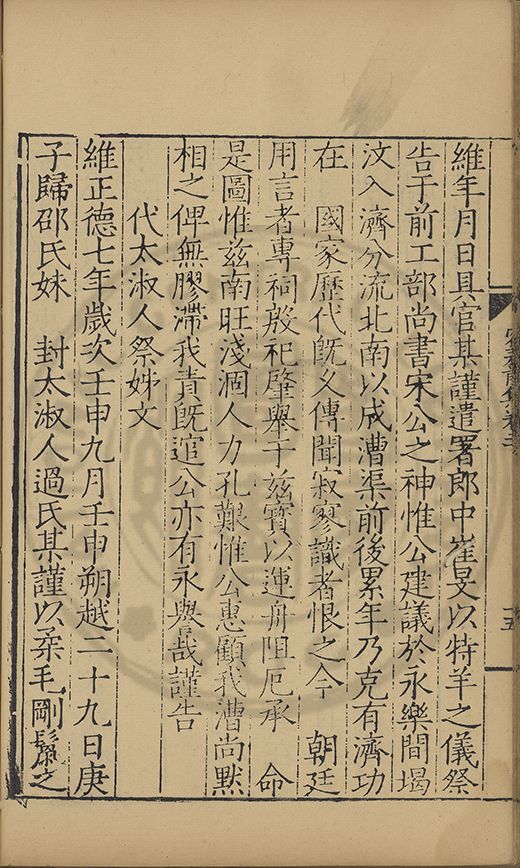 維年月日具官某謹遣署郎中崔旻以特羊之儀祭
告于前工部尚書宋公之神惟公建議於永樂間堨
汶入濟分流北南以成漕渠前後累年乃克有濟功
在　國家歷代旣乂傳聞寂寥識者恨之今　朝廷
用言者專祠殷祀肇舉于兹實以運舟阻厄承　命
是圖惟兹南旺淺涸人力孔艱惟公惠顧我漕尚默
相之俾無膠滯我責旣逭公亦有永譽哉謹告
代太淑人祭姊文
維正德七年歲次壬申九月壬申朔越二十九日庚
子歸邵氏妹　封太淑人過氏某謹以柔毛剛鬛之
十五